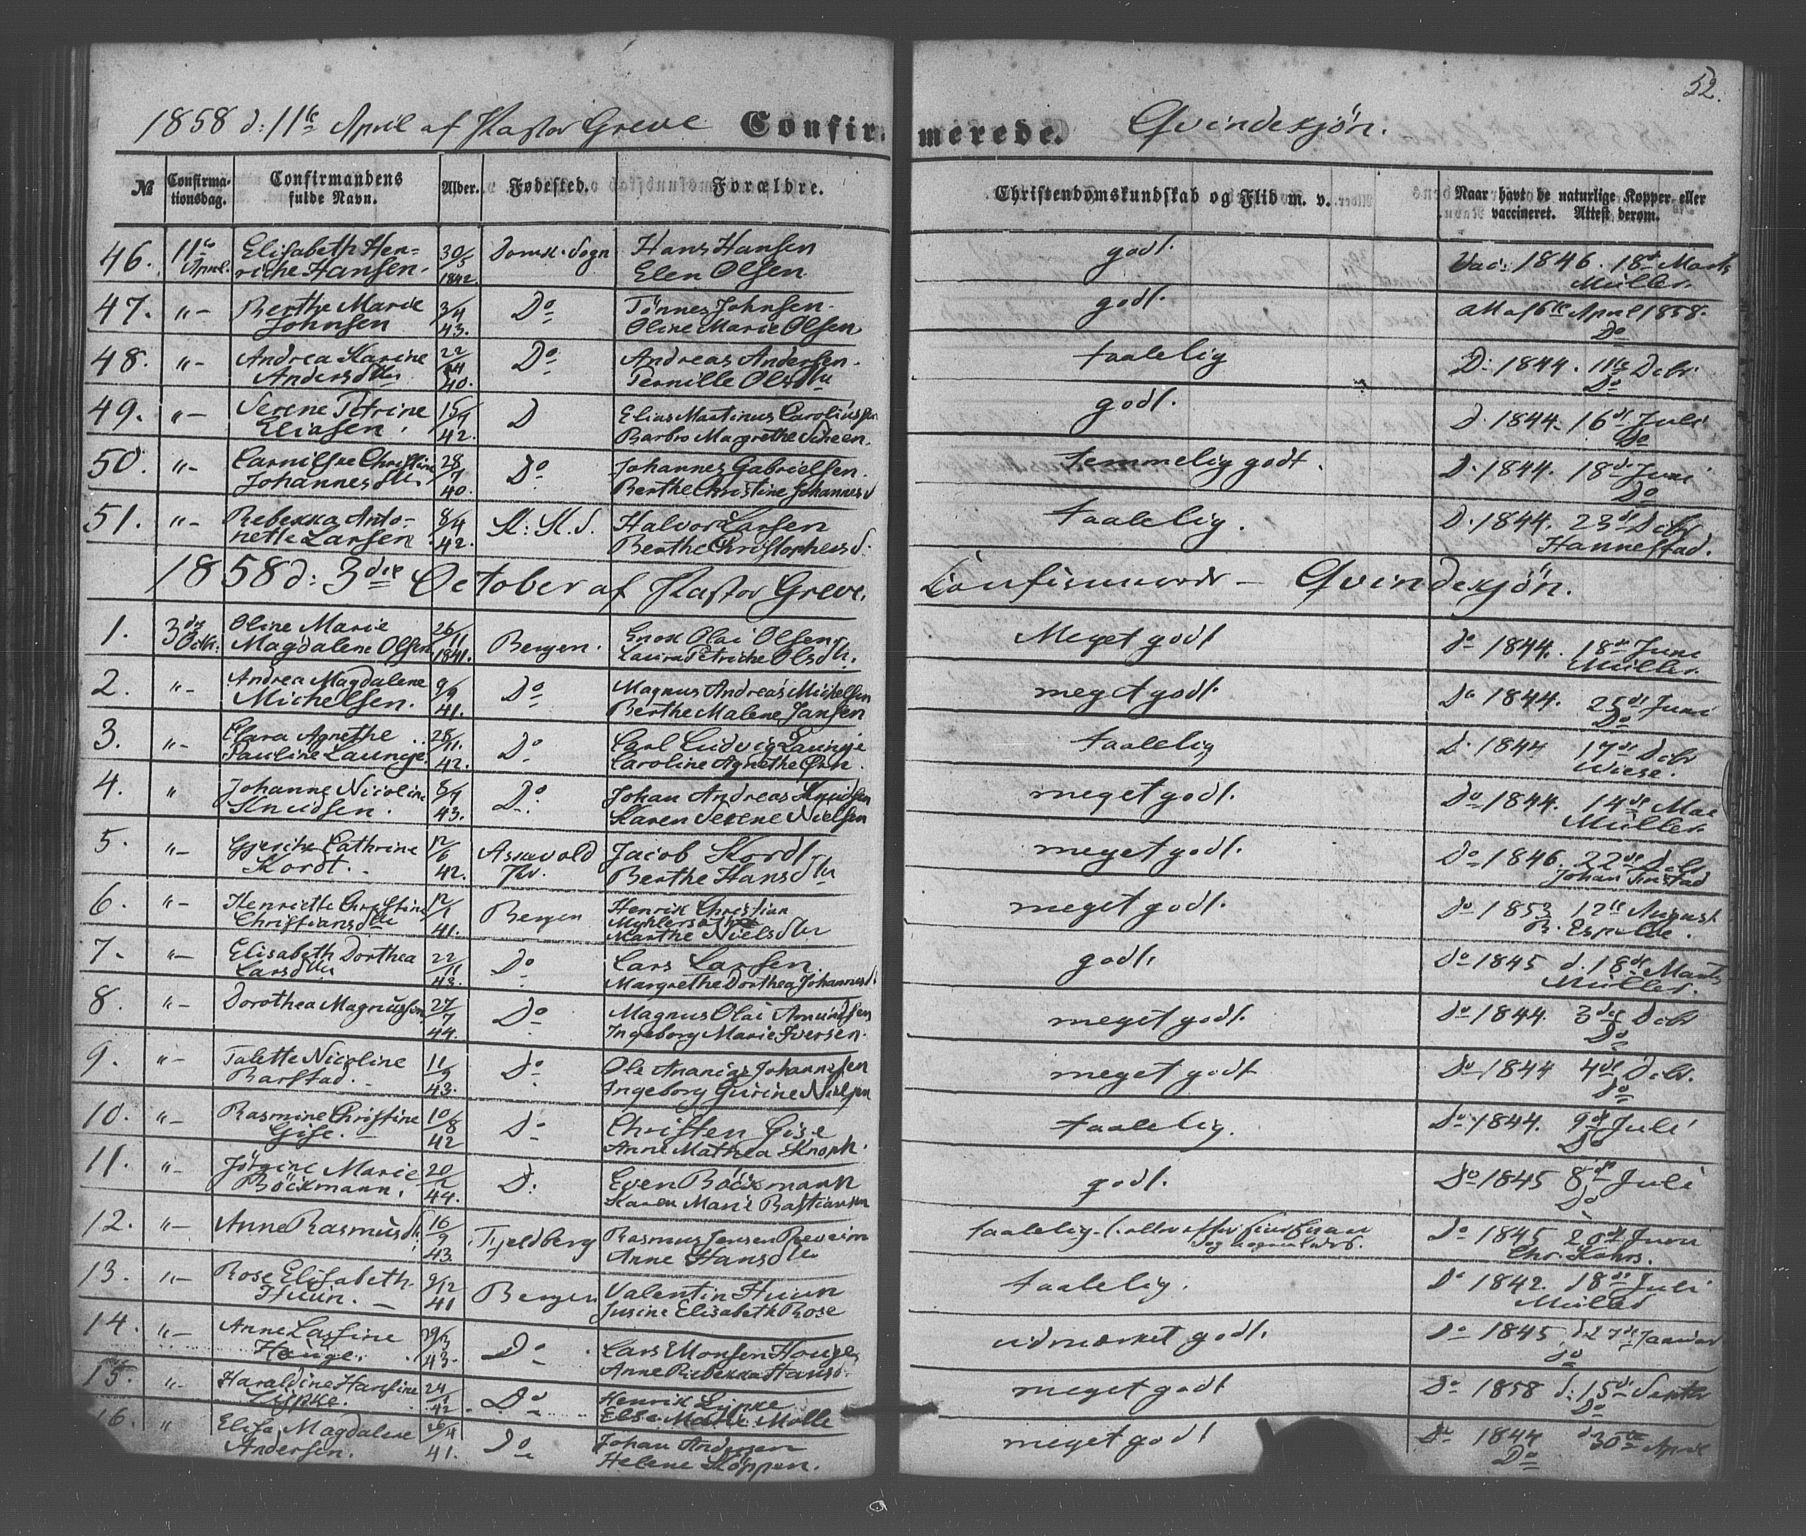 52.
1858 d: 11te April af Pastor Greve Confirmerede. Qvindekjön.
№ Confirmationsdag. Confirmandens fulde Navn. Alder. Fødested. Forældre. Christendomskundskab og Flid m. v. Naar havt de naturlige Kopper eller vaccineret. Attest derom.
46. 11te April. Elisabeth Hen- 30/5 Domk. Sogn Hans Hansen godt. Vac: 1846. 18de Marts
riche Hansen. 1842. Elen Olsen Müller.
47. "- Berthe Marie 3/4 Do Tönnes Johnsen. godt. 6te April 1858.
Johnsen 43. Oline Marie Olsen Do
48. "- Andrea Karine 22/ Do Andreas Andersen. taalelig D: 1844. 11te Decbr
Andersdtr 40. Pernille Olsdtr Do
49. "- Serene Petrine 15/9 D Elias Martinus Caroliussen godt. D. 1844. 16de Juli
Eliasen. 42. Barbro Margrethe Scheen. Do
50. "- Christine 28/7 Do Johannes Gabrielsen. temmelig godt. D. 1844. 18de Juni
Johannesdtr 40. Berthe Christine Johannesd Do
51. "- Rebekka Anto- 8/4 K: K. S. Halvor Larsen taalelig. D. 1844. 23de Decbr
nette Larsen 42. Berthe Christophersd. Hannestad.
1858 d: 3die October af Pastor Greve. Confirmerede – Qvindekjön.
1. 3die Octbr. Oline Marie 26/11 Bergen. Enok Olai Olsen Meget godt Do 1844. 18de Juni
Magdalene Olsen 1841. Laura Petriche Olsdtr. Müller.
2. "- Andrea Magdalene 9/9 Do Magnus Andreas Michelsen meget godt. Do 1844. 25de Juni
Michelsen. 41. Berthe Malene Jansen Do
3. "- Clara Agnethe 28/11. Do Carl Ludvig Launge taalelig D. 1844 17de Decbr
Pauline Launge 42. Caroline Agnethe Örn. Wiese.
4. " Johanne Nicoline 8/9 Do Johan Andreas Knudsen meget godt. Do 1844. 14de Mai
Knudsen. 43. Karen Serene Nielsen Müller.
5. "- Gjeriche Cathrine 12/6 Askevold Jacob Kordt meget godt. Do 1846. 22de Decbr
Kordt. 42. Pr. Berthe Hansdtr Johan
6. "- Henriette Christine 12/1 Bergen Henrik Christian meget godt. Do 1853 12te August
Christiansdtr 41. Marthe Nielsdtr
7. "- Elisabeth Dorthea 22/11 Do Lars Larsen godt. Do 1845 d. 18de Marts
Larsdtr 43. Margrethe Dorthea Johannesd: Müller.
8. "- Dorothea Magnussen 27/7 Do Magnus Olai Amundsen meget godt. Do 1844 3die Decbr
44. Ingeborg Marie Iversen. Do
9. "- Talette Nicoline 11/9 Do Ole Ananias Johannesen meget godt Do 1844 4de Decbr.
Barstad. 43. Ingeborg Gurine Nielsen Do
10. "- Rasmine Christine 10/8 Do Christen Gise taalelig. Do 1844. 9de Juli
Gise. 42 Anne Mathea Knoph. Do
11. "- Jörgine Marie 20/ D. Even Böckmann godt. Do 1845 8de Juli
Böckmann. 44. Karen Marie Bastiansen Do
12. "- Anne Rasmusdtr. 16/9 Fjeldberg Rasmus Jensen taalelig. Do 1845 20de Juni
43. Anne Hansdtr Chr. Kahrs.
13. "- Rose Elisabeth 9/12 Bergen Valentin Huun taalelig. Do 1842. 18de Juli
Huun. 41 Jusine Elisabeth Rose Müller
14. "- Anne Lassine Do Lars Monsen Houge udmærket godt. Do 1845 d 27de Januar
Houge. 43. Anne Rebekka Hansd. Do
15. "- Haraldine Hansine 24/ Do Henrik Lypke meget godt Do 1858 d: 15de Septbr
Lypke. 42 Else Marie Molle Do
16. " Elise Magdalene 26/4 Do Johan Andersen meget godt Do 1844 30te April
Andersen. 41. Helene Köppen. Do